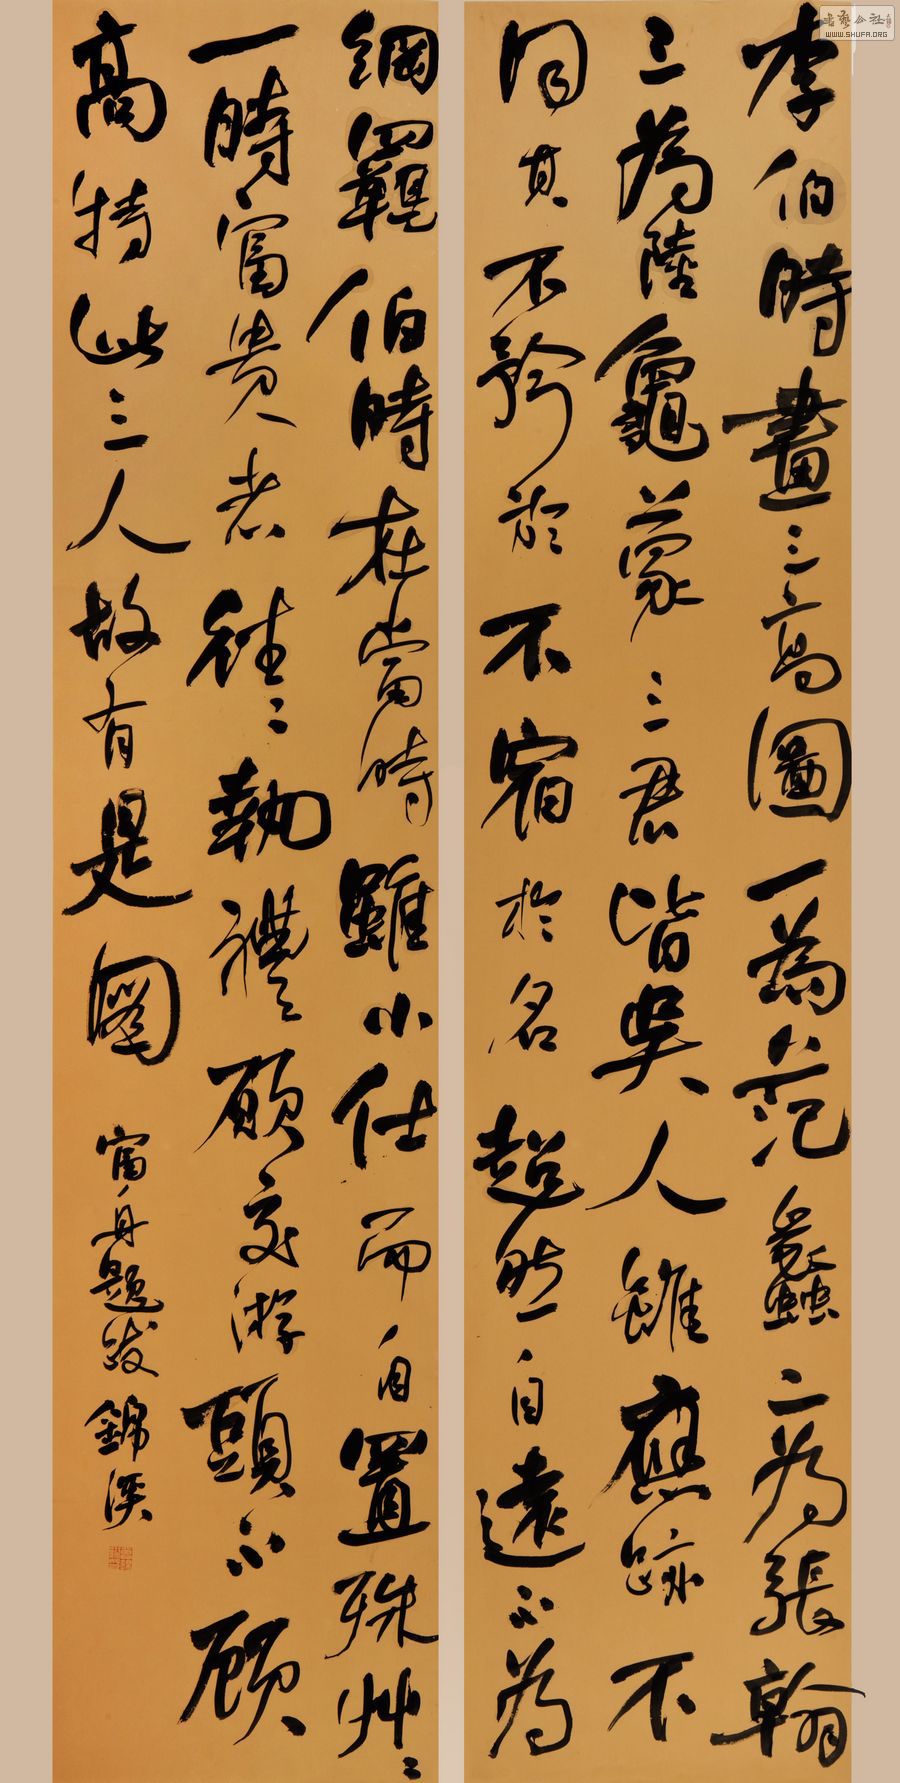 李伯時畫三高圖一為范蠡二為張翰
三為陸龜蒙三君皆吳人雖應跡不
同其不矜於不宿於名超然自遠不為
網羈伯時在當時雖小仕而自置殊艸〻
一時富貴者往〻執禮願交游頭不顧
高特此三人故有是圖
甯舟題跋錦溪
書藝公社
WWW.SHUFA.ORG